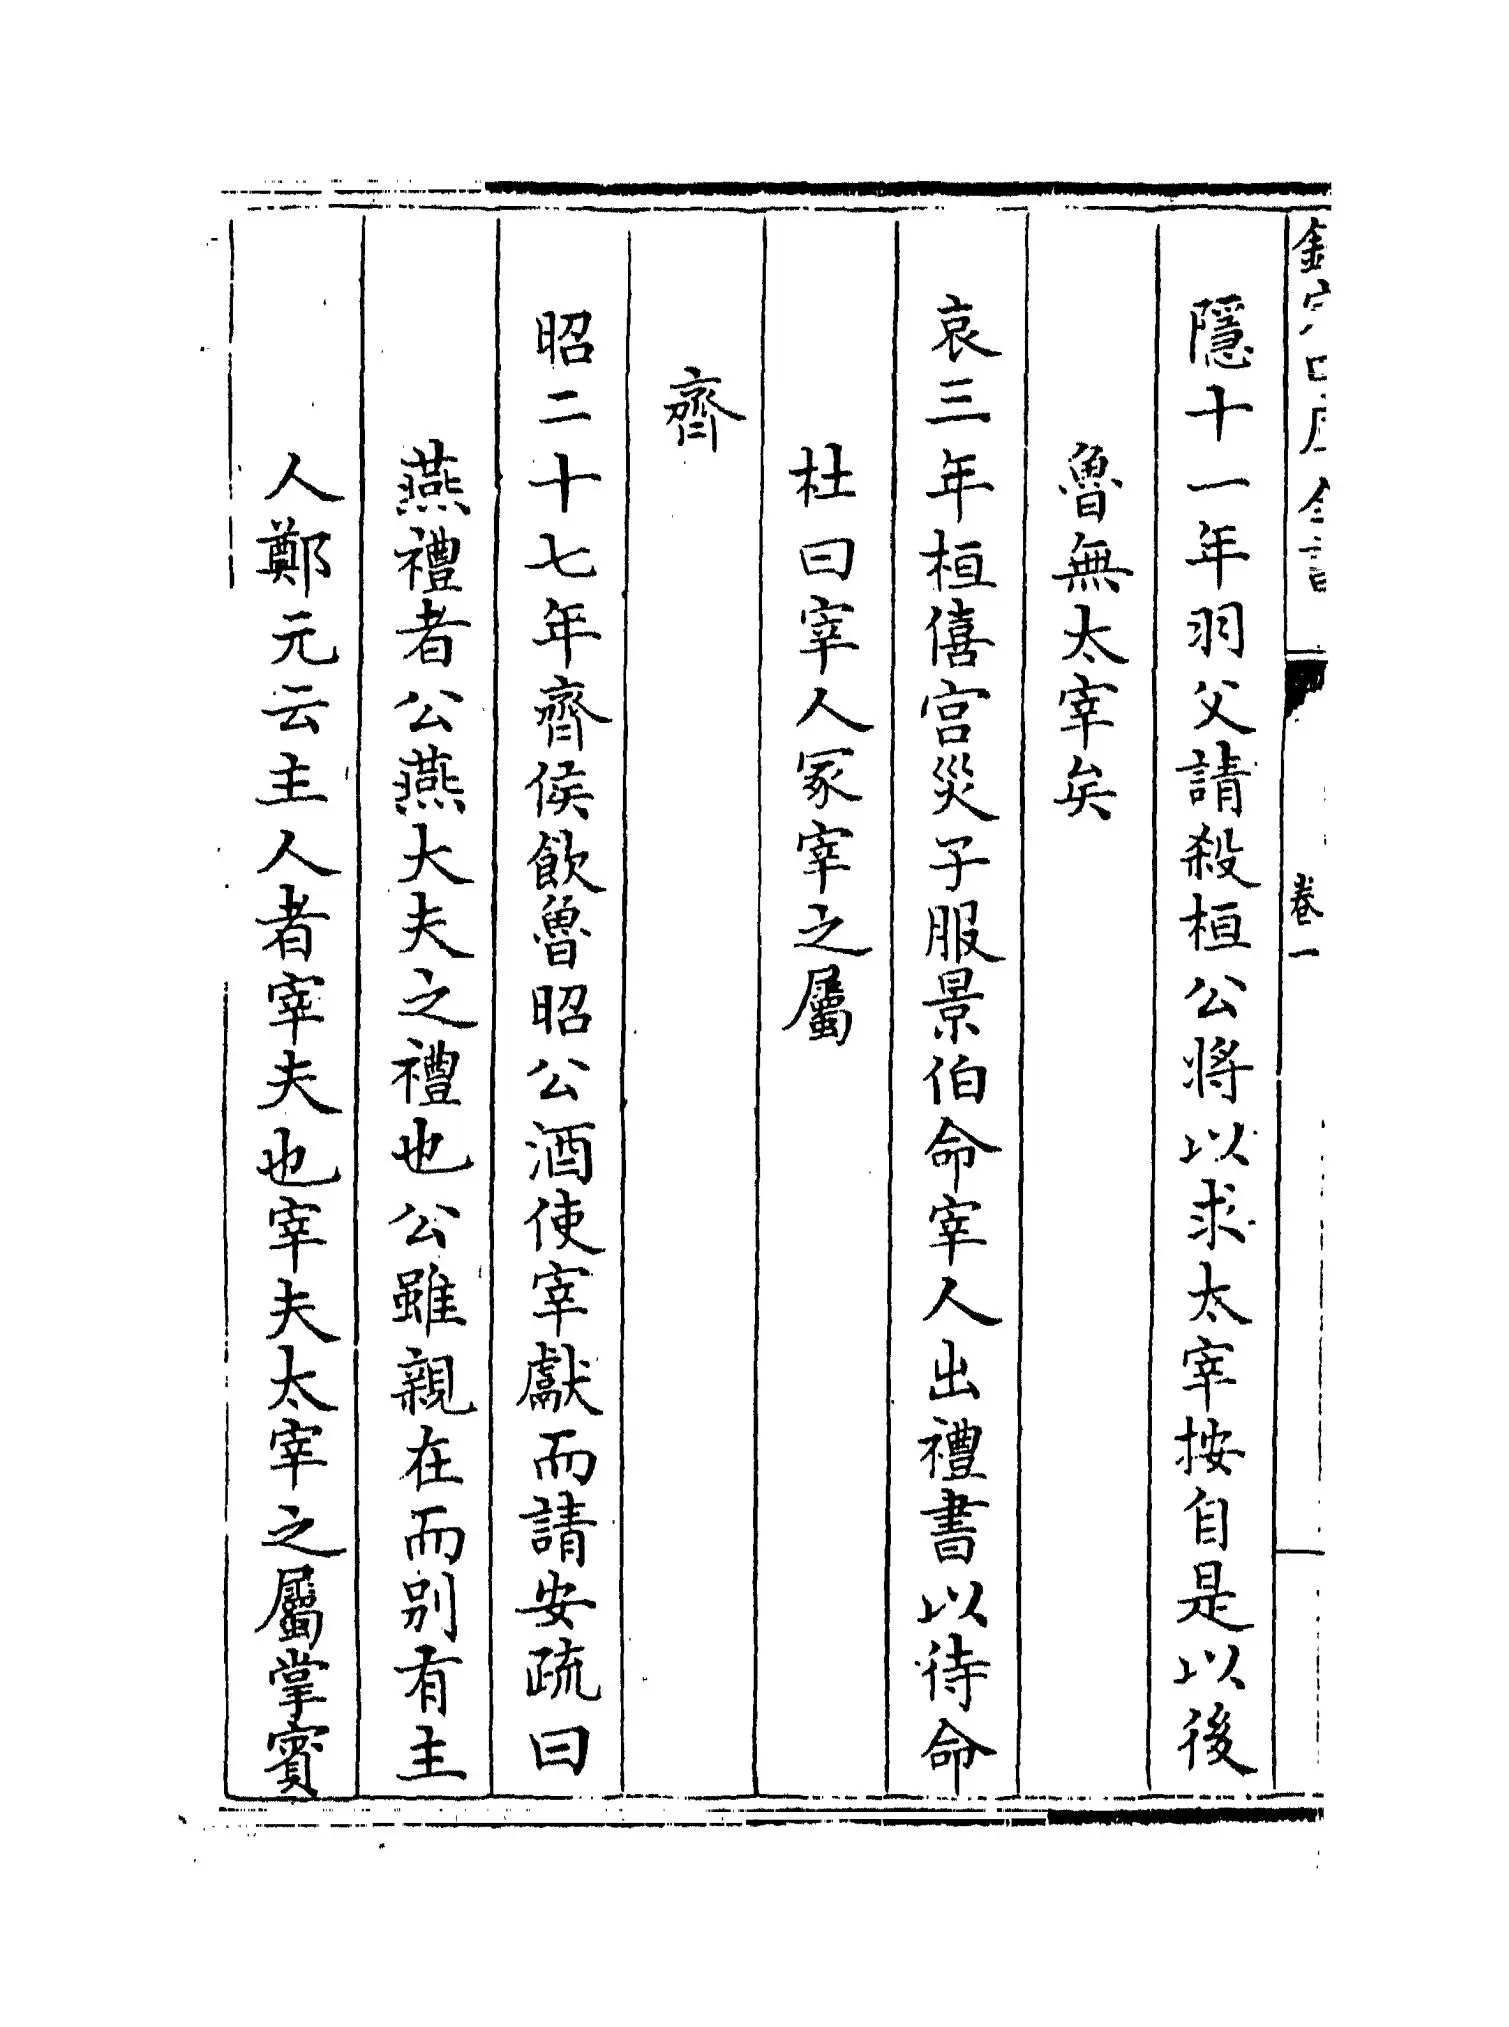 欽定四庫全書
卷一
隱十一年羽父請殺桓公將以求太宰按自是以後
魯無太宰矣
哀三年桓僖宮災子服景伯命宰人出禮書以待命
杜曰宰人冢宰之屬
齊
昭二十七年齊侯飲魯昭公酒使宰獻而請安疏曰
燕禮者公燕大夫之禮也公雖親在而别有主
人鄭元云主人者宰夫也宰夫太宰之屬掌賓